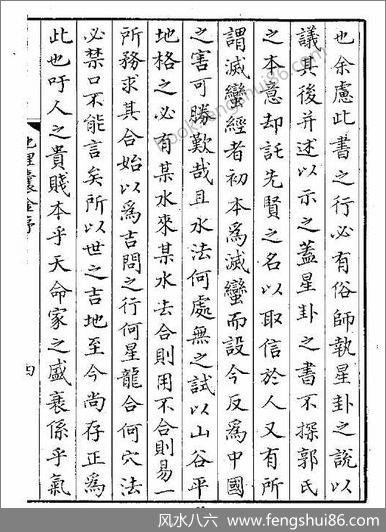 也余慮此書之行必有俗師執星卦之說以
議其後并述以示之蓋星卦之書不探郭氏
之本意却託先賢之名以取信於人又有所
謂滅蠻經者初本為滅蠻而設今反為中國
之害可勝歎哉且水法何處無之試以山谷平
地格之必有某水來某水去合則用不合則易一
所務求其合始以為吉問之行何星龍合何穴法
必禁口不能言矣所以世之吉地至今尚存正為
此也吁人之貴賤本乎天命家之盛衰係乎氣
地理囊金序
四
風水八六 www.fengshui86.com